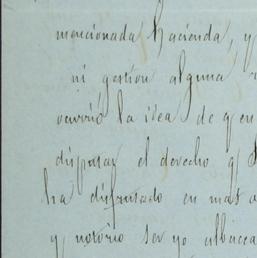 mencionada hacienda, y
ni gestion alguna
ocurrió la idea de q en
disputar el derecho q
ha disfrutado en mas
y notorio ser yo albacea